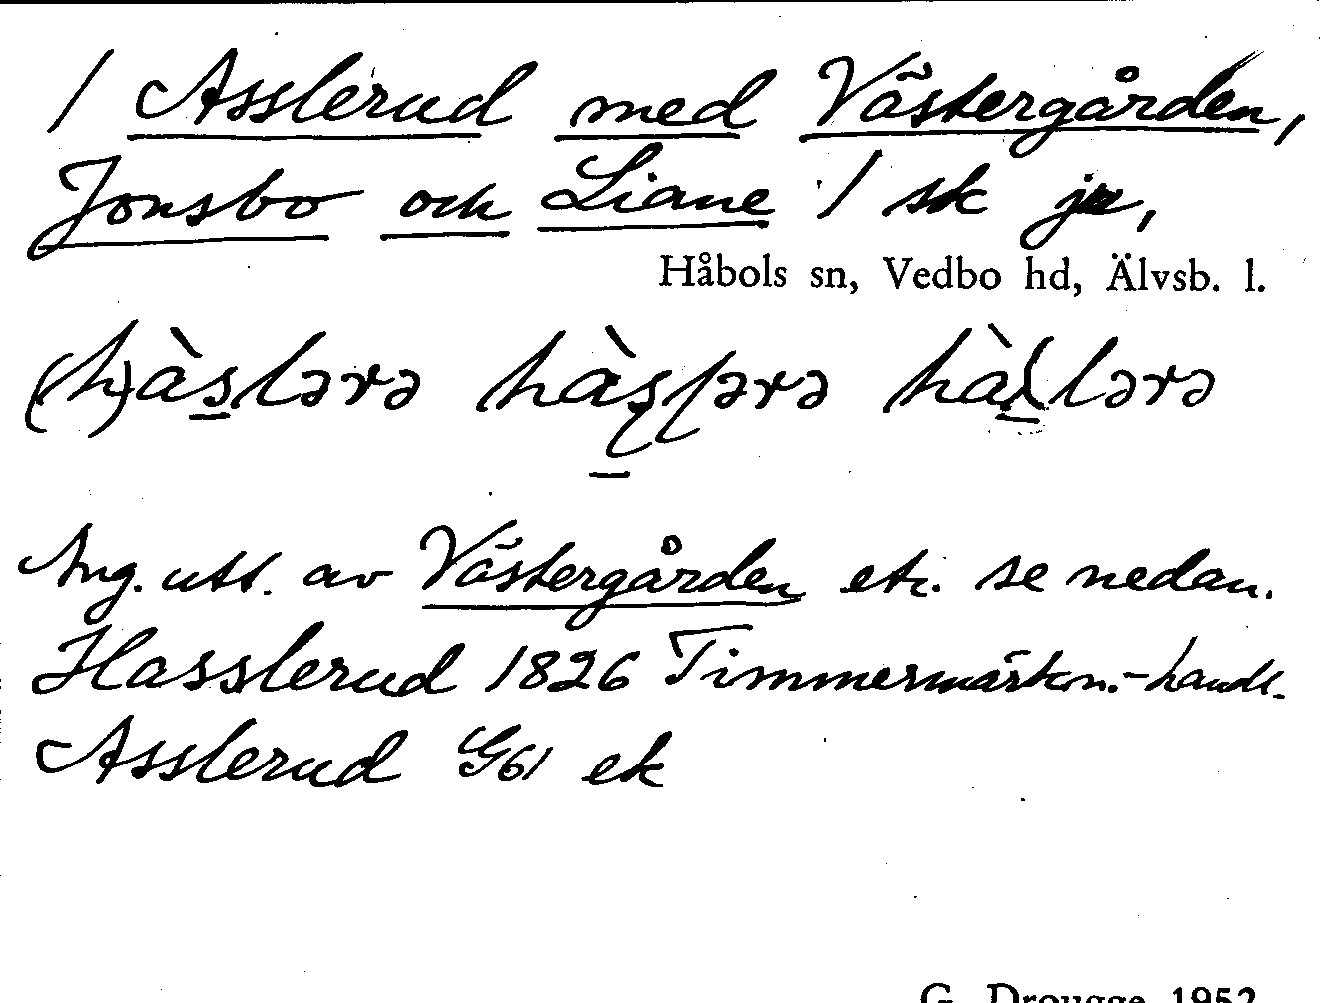 / Asslerud med Västergården,
Jonsbo och Liane / sk ju,
Håbols sn, Vedbo hd, Älvsb. l.
(h)àslərə hàslərə hàslərə
Ang. utt. av Västergården etc. se nedan.
Hasslerud 1826 Timmermärkn.-handl.
Asslerud G61 ek
G. Drougge 1952